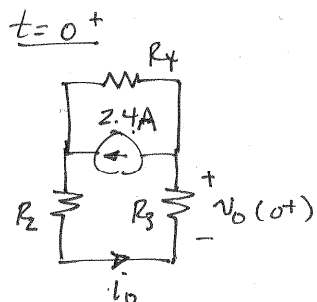 t = 0⁺
R4
2.4A
R2
R3
+
v₀ (0⁺)
−
i₀